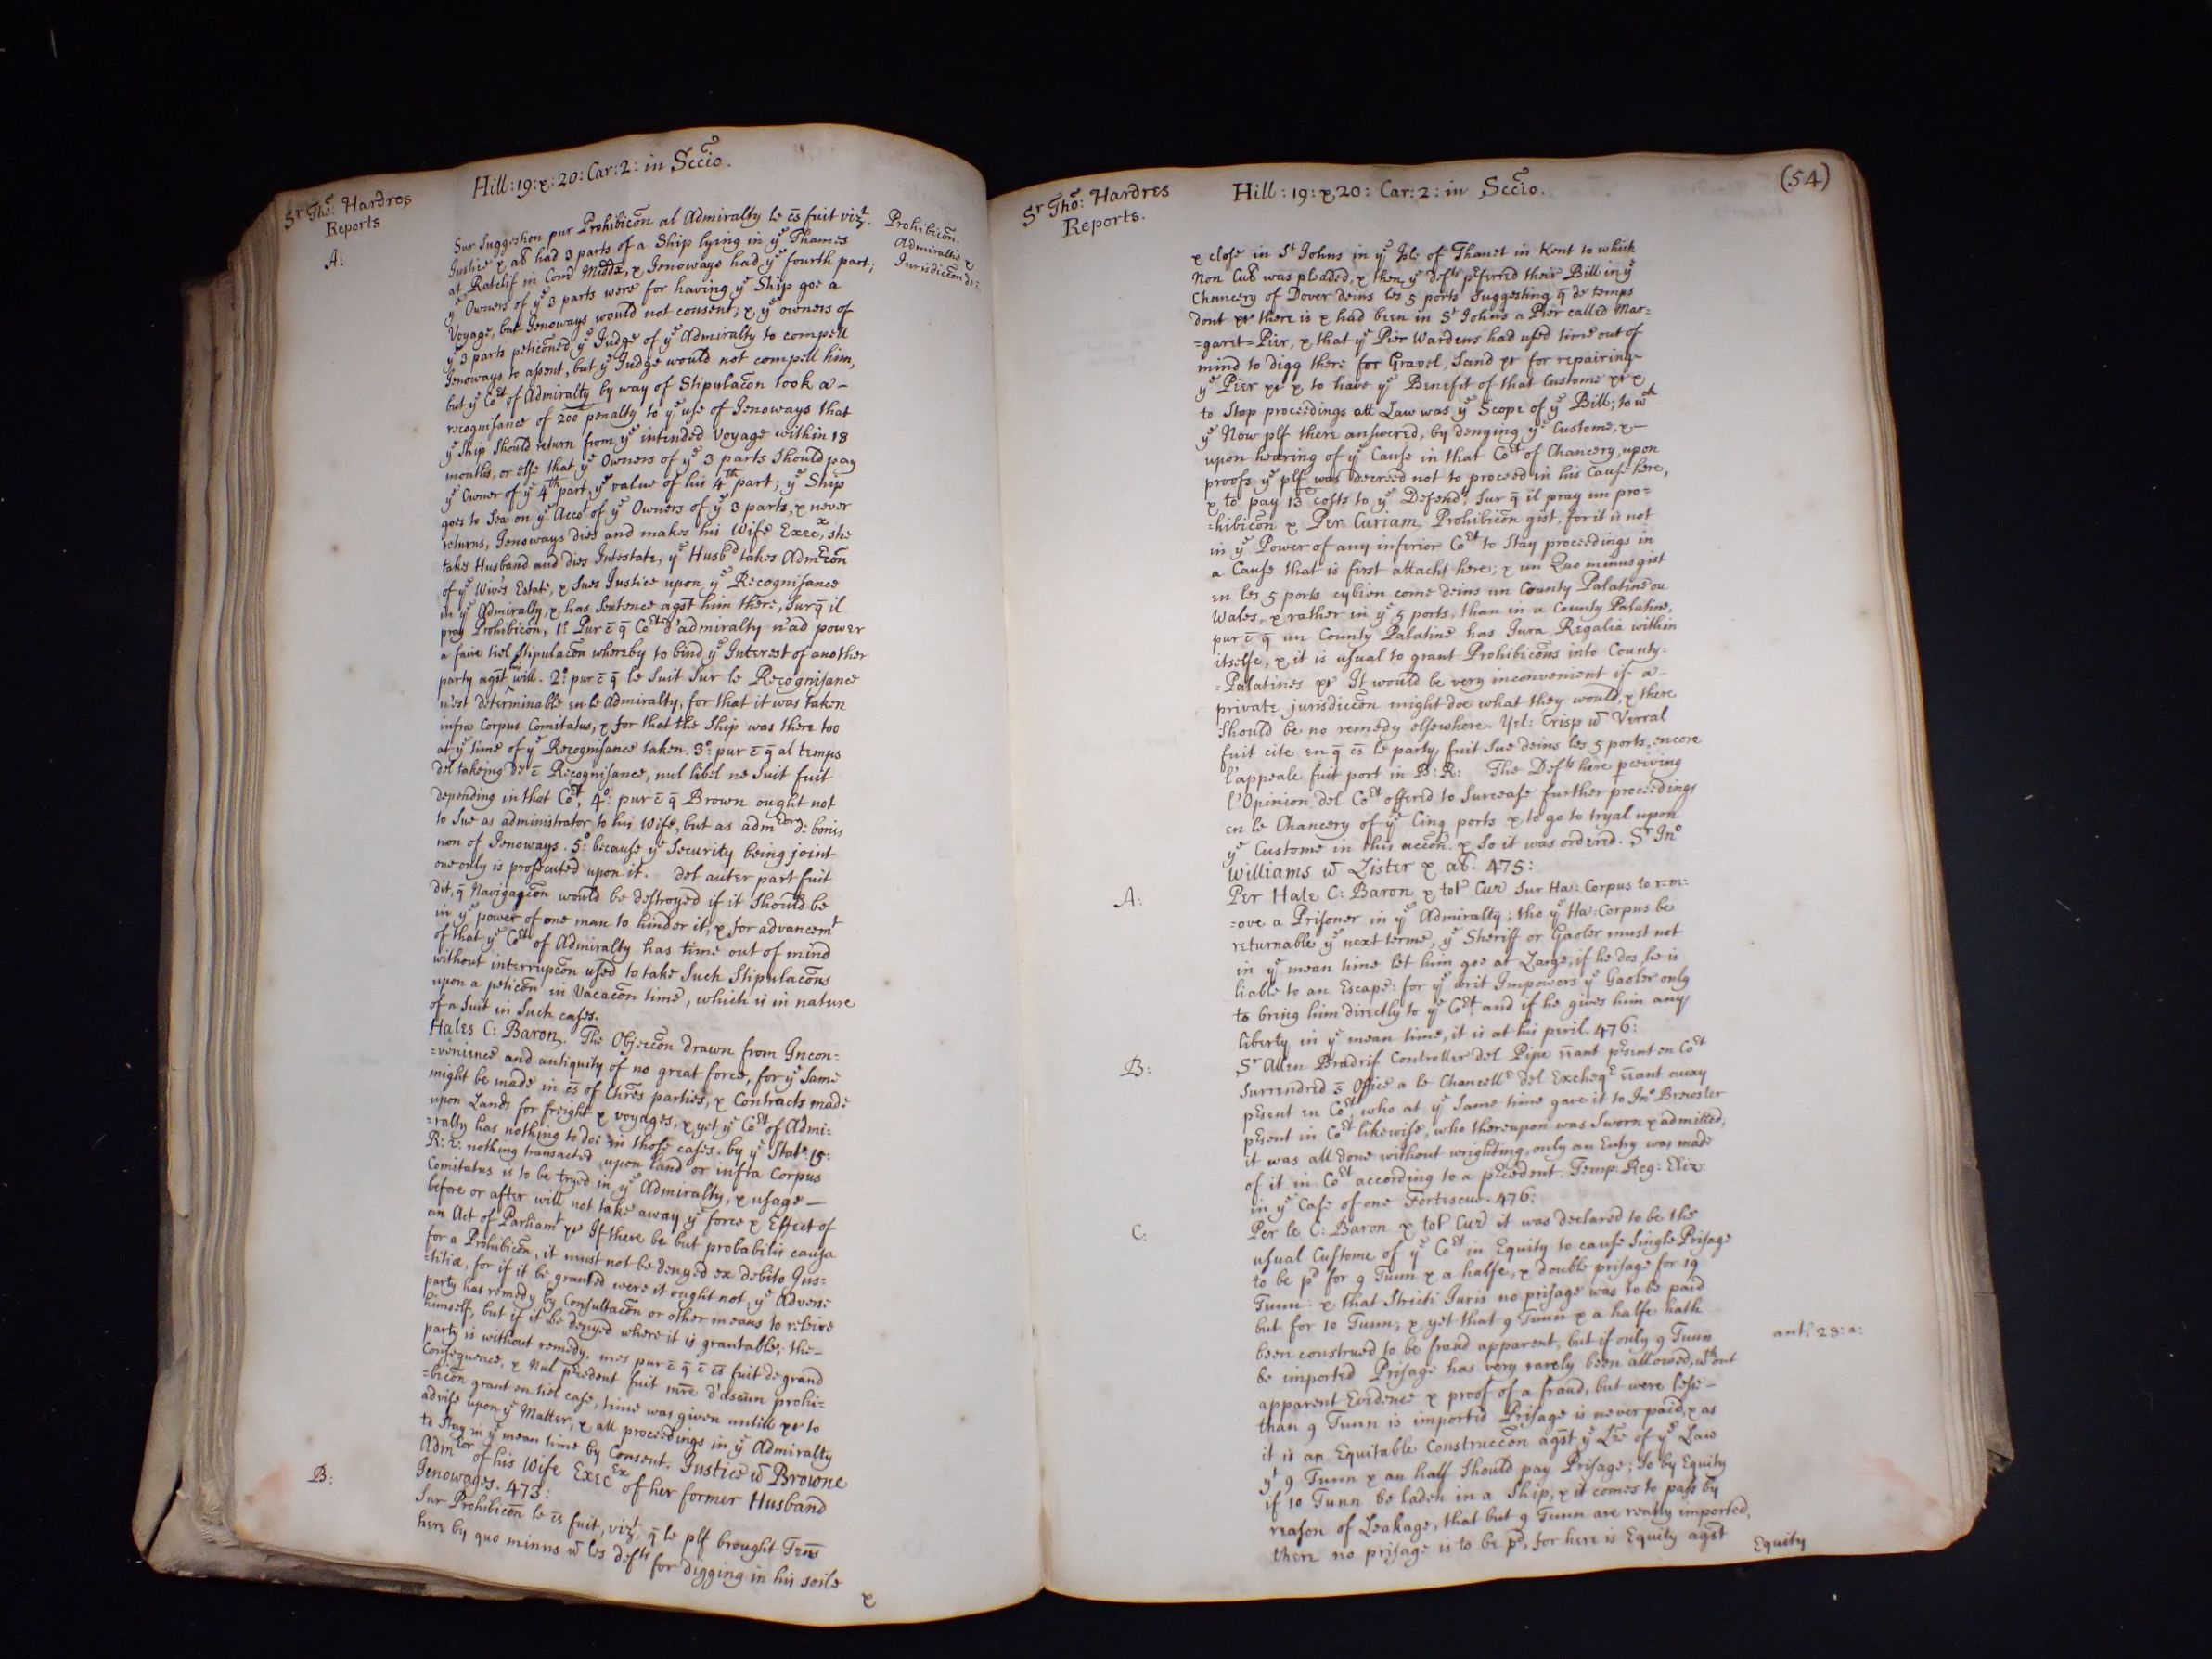 Sr Tho: Hardres
Reports
Hill: 19: & 20: Car: 2: in Sccio.
Prohibicōn.
Admiraltie &
Jurisdiccōn
A:
Sur Suggestion pur Prohibicōn al Admiralty le cs fuit vizt.
Justice & al had 3 parts of a Ship lying in ye Thames
at Ratclif in Com̄ Midds, & Jenoways had ye fourth part;
ye Owners of ye 3 parts were for having ye Ship goe a
Voyage, but Jenoways would not consent; & ye owners of
ye 3 parts peticōned ye Judge of ye Admiralty to compell
Jenoways to assent, but ye Judge would not compell him,
but ye Cort of Admiralty by way of Stipulacōn took a-
recognisance of 200 penalty to ye use of Jenoways that
ye Ship Should return from ye intended Voyage within 18
months, or else that ye Owners of ye 3 parts Should pay
ye Owner of ye 4th part, ye value of his 4th part; ye Ship
goes to Sea on ye Accot of ye Owners of ye 3 parts, & never
returns, Jenoways dies and makes his Wife Execx, she
takes Husband and dies Intestate, ye Husbd takes Admrcōn
of ye Wives Estate, & Sues Justice upon ye Recognisance
in ye Admiralty, & has Sentence agst him there, Sur q̄ il
pray Prohibicōn, 1o Pur c̄ q̄ Cort d'admiralty n'ad power
a faire tiel Stipulacōn whereby to bind ye Interest of another
party agst his will. 2o: pur c̄ q̄ le Suit Sur le Recognisance
n'est determinable en le Admiralty, for that it was taken
infra Corpus Comitatus, & for that the Ship was there too
at ye time of ye Recognisance taken. 3o: pur c̄ q̄ al temps
del takeing de c̄ Recognisance, nul libel ne Suit fuit
depending in that Cort, 4o: pur c̄ q̄ Brown ought not
to Sue as administrator to his Wife, but as admtor de bonis
non of Jenoways. 5o: because ye Security being joint
one only is prosecuted upon it. Del auter part fuit
dit, q̄ Navigacōn would be destroyed if it Should be
in ye power of one man to hinder it, & for advancemt
of that ye Cort of Admiralty has time out of mind
without interrupcōn used to take Such Stipulacōns
upon a peticōn in Vacacōn time, which is in nature
of a Suit in Such cases.
Hales C: Baron. The Objeccōn drawn from Incon=
=venience and antiquity of no great force, for ye Same
might be made in cs of Chres parties, & Contracts made
upon Lands for freight & voyages, & yet ye Cort of Admi=
=ralty has nothing to doe in those cases. by ye Stat: 15:
R: 2: nothing transacted upon land or infra Corpus
Comitatus is to be tryed in ye Admiralty, & usage -
before or after will not take away ye force & Effect of
an Act of Parliamt &c If there be but probabilis causa
for a Prohibicōn, it must not be denyed ex debito Jus=
=titiæ, for if it be granted were it ought not, ye Adverse
party has remedy by Consultacōn or other means to releive
himself, but if it be denyed where it is grantable; the-
party is without remedy. mes pur c̄ q̄ c̄ cs fuit de grand
Consequence, & Nul president fuit mre d'ascun prohi=
=bicōn grant en tiel case, time was given untill &c to
advise upon ye Matter, & all proceedings in ye Admiralty
to Stay in ye mean time by Consent. Justice & Browne
Admtor of his Wife ExecEx of her former Husband
Jenowages. 473:
B:
Sur Prohibicōn le cs fuit, vizt, q̄ le plf brought Trns
here by quo minus & les defts for digging in his soile
&
Sr Tho: Hardres
Reports.
Hill: 19: & 20: Car: 2: in Sccio.
(54)
& close in St Johns in ye Isle of Thanet in Kent to which
Non Cul was pleaded, & then ye defts pferred their Bill in ye
Chancery of Dover deins les 5 ports Suggesting q̄ de temps
dont &c there is & had been in St Johns a Pier called Mar=
=garet=Pier, & that ye Pier Wardens had used time out of
mind to digg there for Gravel, Sand &c for repairing-
ye Pier &c & to have ye Benefit of that Custome &c &
to Stop proceedings att Law was ye Scope of ye Bill; to wh
ye Now plf there answered, by denying ye Custome, & -
upon hearing of ye Cause in that Cort of Chancery, upon
proofs ye plf was decreed not to proceed in his Cause here,
& to pay 13 costs to ye Defendt. Sur q̄ il pray un pro=
=hibicōn & Per Curiam, Prohibicōn gist, for it is not
in ye Power of any inferior Cort to Stay proceedings in
a Cause that is first attacht here; & un Quo minus gist
en les 5 ports cybien come deins un County Palatine ou
Wales, & rather in ye 5 ports, than in a County Palatine,
pur c̄ q̄ un County Palatine has Jura Regalia within
itselfe, & it is usual to grant Prohibicōns into County=
=Palatines &c It would be very inconvenient if a-
private jurisdiccōn might doe what they would, & there
Should be no remedy elsewhere. Yel: Crisp & Verral
fuit cite en q̄ cs le party fuit Sue deins les 5 ports, encore
l'appeale fuit port in B: R: The Defts here pceiving
l'Opinion del Cort offered to Surcease further proceedings
en le Chancery of ye Cinq ports & to go to tryal upon
ye Custome in this accōn. & So it was ordered. Sr Jno
Williams & Lister & al. 475:
A:
Per Hale C: Baron & tot Cur Sur Ha: Corpus to rem=
=ove a Prisoner in ye Admiralty; tho ye Ha: Corpus be
returnable ye next terme, ye Sheriff or Gaoler must not
in ye mean time let him goe at Large, if he dos, he is
liable to an Escape: for ye writ Impowers ye Gaoler only
to bring him directly to ye Cort, and if he gives him any
liberty in ye mean time, it is at his peril. 476:
B:
Sr Allen Bradrif Controller del Pipe eant psent en Cort
Surrendred s̄ Office a le Chancellr del Excheqr eant auxy
psent en Cort, who at ye Same time gave it to Jno Brewster
psent in Cort likewise, who thereupon was Sworn & admitted,
it was all done without wrighting, only an Entry was made
of it in Cort according to a pcedent Temp: Reg: Eliz:
in ye Case of one Fortescue. 476:
C:
Per le C: Baron & tot Cur it was declared to be the
usual Custome of ye Cort in Equity to cause Single Prisage
to be pd for 9 Tunn & a halfe, & double prisage for 19
Tunn: & that Stricti Juris no prisage was to be paid
but for 10 Tunn; & yet that 9 Tunn & a halfe hath
been construed to be fraud apparent, but if only 9 Tunn
be imported Prisage has very rarely been allowed, wthout
apparent Evidence & proof of a fraud, but were lesse-
than 9 Tunn is imported Prisage is never paid, & as
it is an Equitable Construccōn agst ye Lre of ye Law
yt 9 Tunn & an half Should pay Prisage; So by Equity
if 10 Tunn be laden in a Ship, & it comes to pass by
reason of Leakage, that but 9 Tunn are really imported,
there no prisage is to be pd, for here is Equity agst
ant: 28: a:
Equity